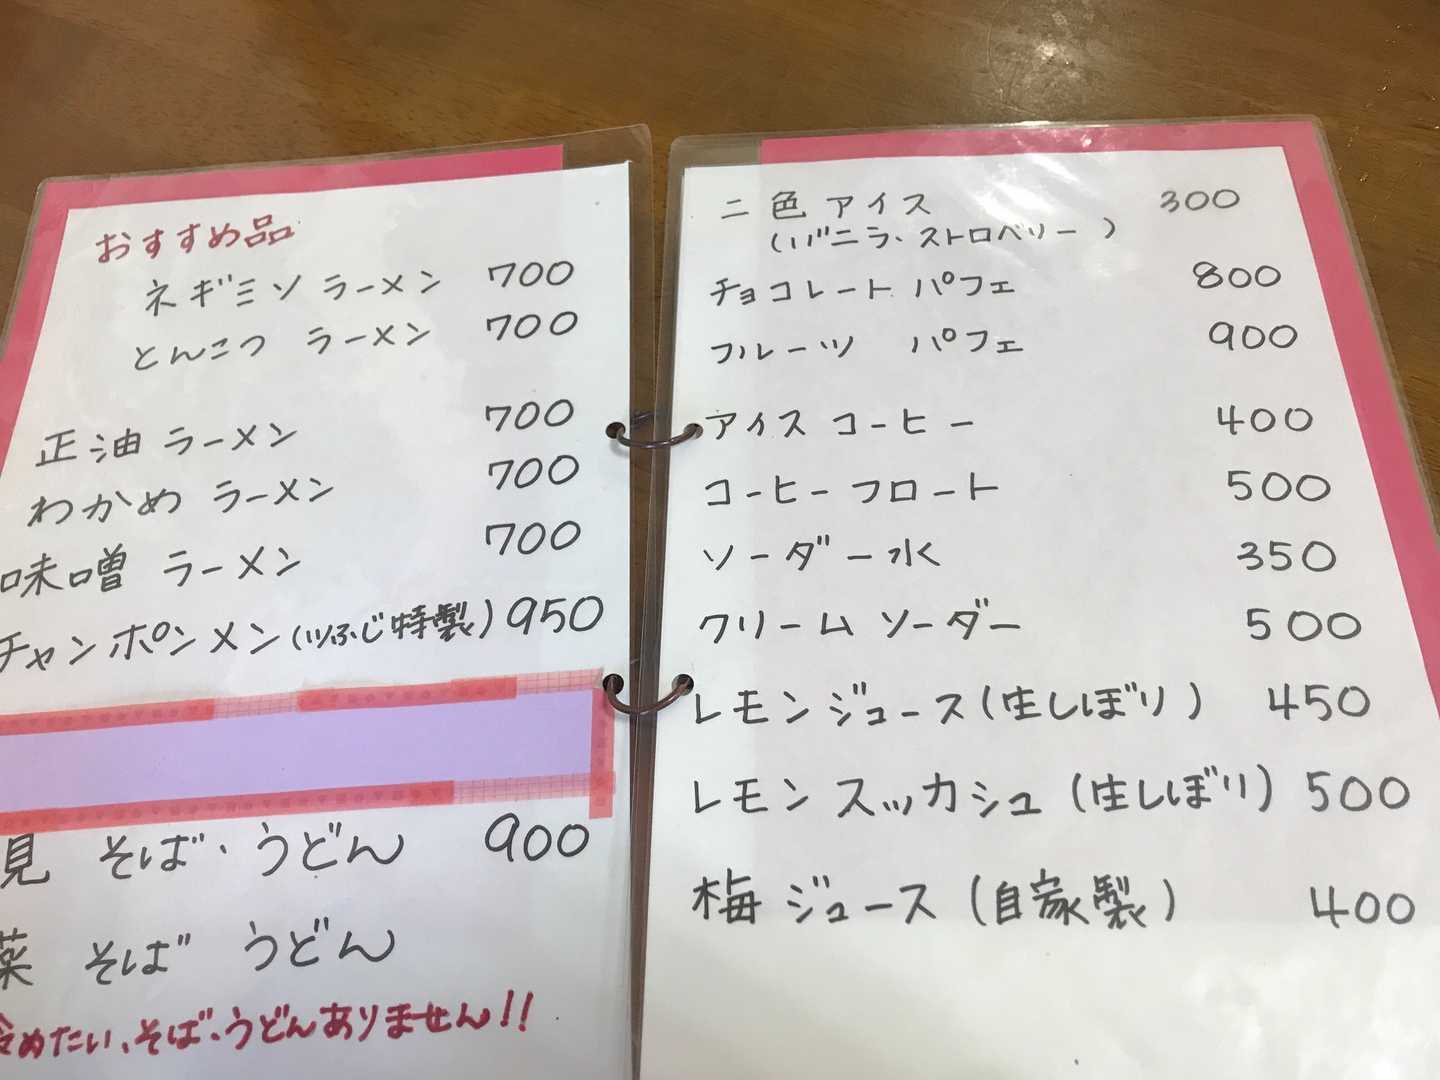 おすすめ品
ネギミソ ラーメン 700
とんこつ ラーメン 700
正油 ラーメン 700
わかめ ラーメン 700
味噌 ラーメン 700
チャンポンメン(ツふじ特製) 950
見 そば・うどん 900
菜 そば うどん
冷めたい、そば、うどんありません!!
二色アイス 300
(バニラ・ストロベリー)
チョコレート パフェ 800
フルーツ パフェ 900
アイス コーヒー 400
コーヒーフロート 500
ソーダー水 350
クリーム ソーダー 500
レモン ジュース(生しぼり) 450
レモン スッカシュ(生しぼり) 500
梅 ジュース(自家製) 400